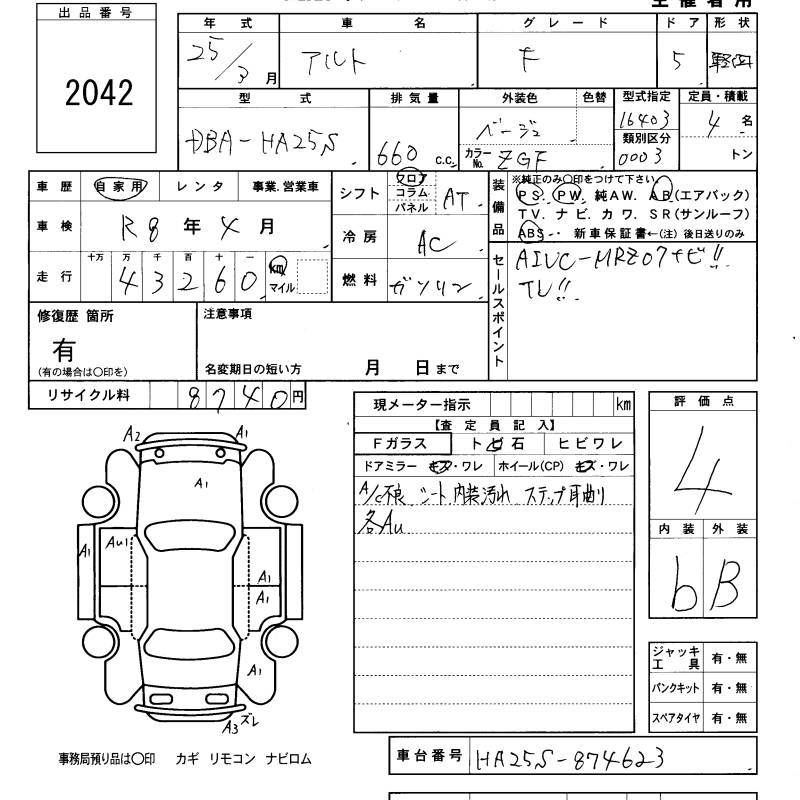 主催者用
出品番号
2042
年式 車名 グレード ドア 形状
25/3月 アルト F 5 軽四
型式 排気量 外装色 色替 型式指定 定員・積載
DBA-HA25S 660 c.c. ベージュ 16403 4名
カラーNo. ZGF 類別区分 0003 トン
車歴 自家用 レンタ 事業.営業車
シフト フロア コラム パネル AT
装備品 ※純正のみ〇印をつけて下さい
PS. PW. 純AW. AB(エアバッグ)
TV. ナビ. カワ. SR(サンルーフ)
ABS.. 新車保証書←(注) 後日送りのみ
車検 R8年4月
冷房 AC
走行 十万 万 千 百 十 一
43260 km マイル
燃料 ガソリン
セールスポイント AIVC-MRZ07ナビ!!
TV!!
修復歴 箇所 注意事項
有
(有の場合は〇印を) 名変期日の短い方 月 日まで
リサイクル料 8740円
現メーター指示 km
【査定員記入】
Fガラス トビ石 ヒビワレ
ドアミラー キズ・ワレ ホイール(CP) キズ・ワレ
A/C不良 シート 内装汚れ ステップ耳曲り
各AU
評価点
4
内装 外装
b B
A2 A1
A1
A1 AU1
A1
A1
A1
A3 ズレ
ジャッキ工具 有・無
パンクキット 有・無
スペアタイヤ 有・無
事務局預り品は〇印 カギ リモコン ナビロム
車台番号 HA25S-874623